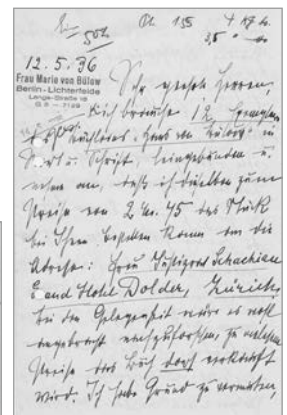 Ph 155
12.5.36
Frau Marie von Bülow
Berlin-Lichterfelde
Lange-Straße
G 3 – 7129
Sehr geehrte Herren,
Ich brauche 12 Exemplare
des Büchleins „Hans von Bülow in
Wort u. Schrift, eingebunden u.
nehme an, daß ich dieselben zum
Preise von 2 M. 45 das Stück
bei Ihnen bestellen kann an die
Adresse: Frau Justizrat Schachian
Grand Hotel Dolder, Zürich,
bei der Gelegenheit wäre es wohl
angebracht nachzuforschen, zu welchem
Preise das Buch dort verkauft
wird. Ich habe Grund zu vermuten,